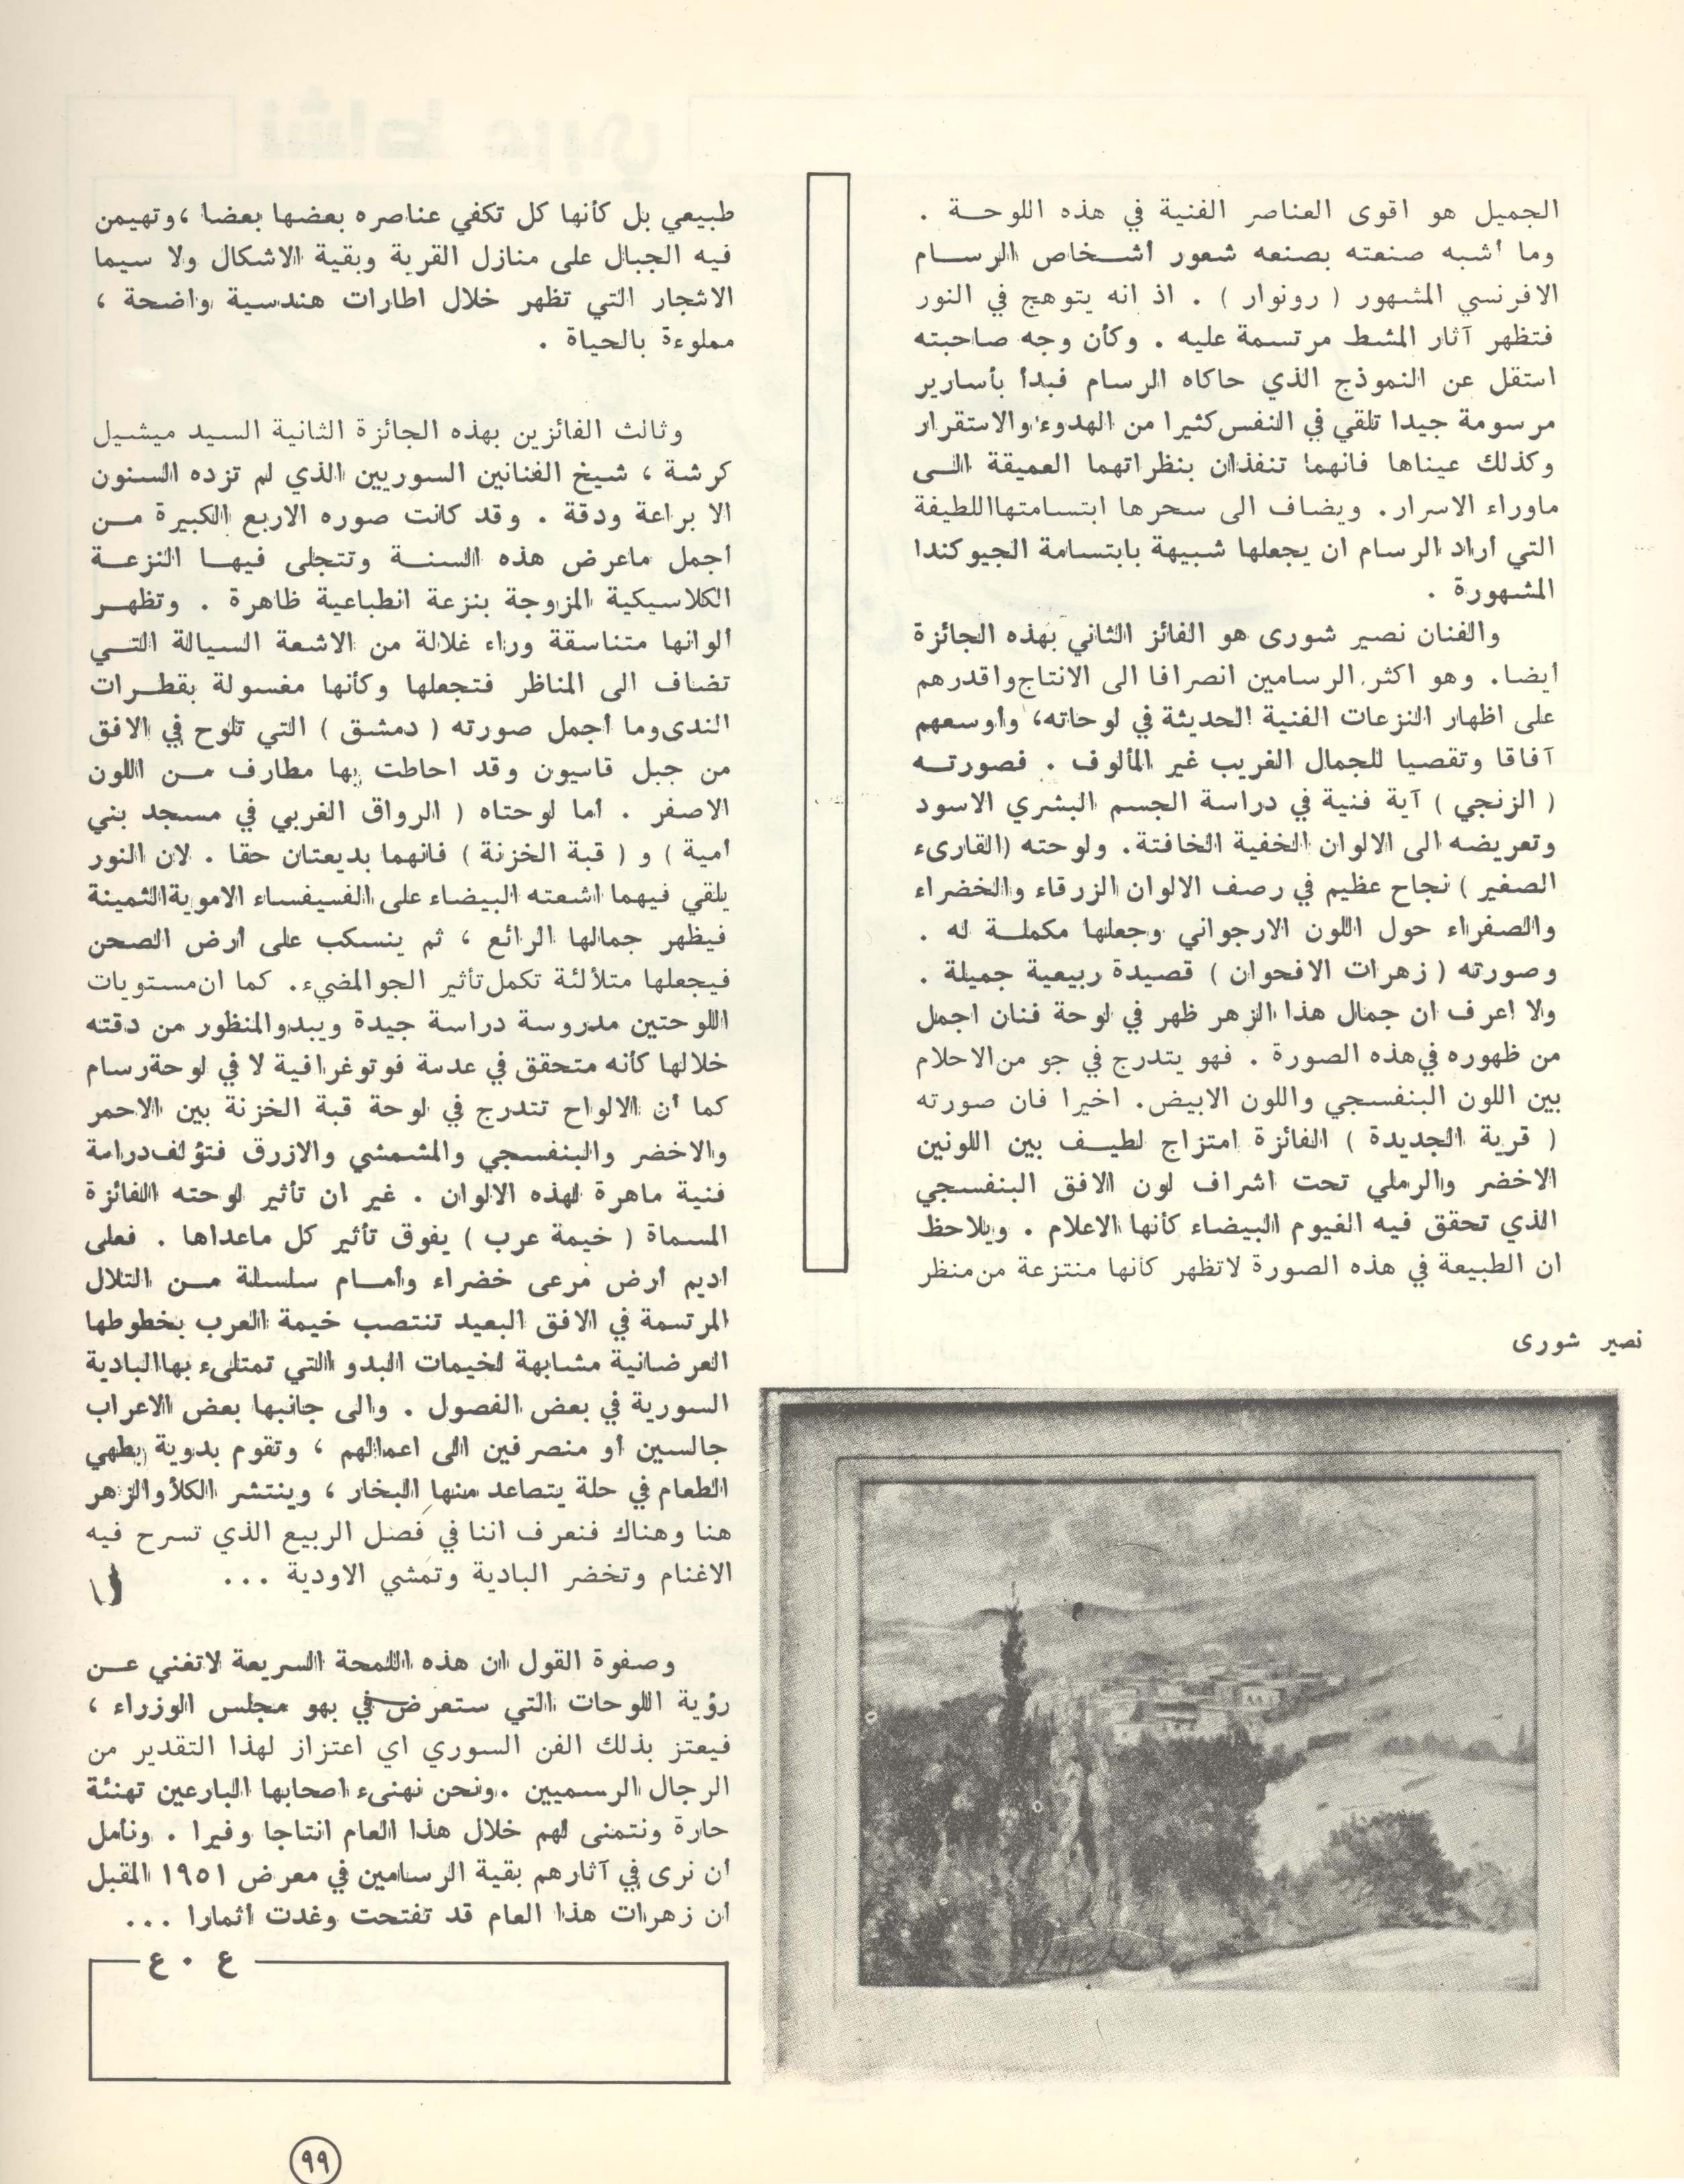 الجميل هو اقوى العناصر الفنية في هذه اللوحـة .
وما أشبه صنعته بصنعه شعور أشـخاص الرسـام
الافرنسي المشهور ( رونوار ) . اذ انه يتوهج في النور
فتظهر آثار المشط مرتسمة عليه . وكأن وجه صاحبته
استقل عن النموذج الذي حاكاه الرسام فبدأ بأسارير
مرسومة جيدا تلقي في النفس كثيرا من الهدوء والاستقرار
وكذلك عيناها فانهما تنفذان بنظراتهما العميقة الـى
ماوراء الاسرار. ويضاف الى سحرها ابتسامتها اللطيفة
التي أراد الرسام ان يجعلها شبيهة بابتسامة الجيوكندا
المشهورة .
والفنان نصير شورى هو الفائز الثاني بهذه الجائزة
أيضا. وهو اكثر الرسامين انصرافا الى الانتاج واقدرهم
على اظهار النزعات الفنية الحديثة في لوحاته، وأوسعهم
آفاقا وتقصيا للجمال الغريب غير المألوف . فصورتـه
( الزنجي ) آية فنية في دراسة الجسم البشري الاسود
وتعريضه الى الالوان الخفية الخافتة. ولوحته (القارىء
الصغير ) نجاح عظيم في رصف الالوان الزرقاء والخضراء
والصفراء حول اللون الارجواني وجعلها مكملـة له .
وصورته ( زهرات الاقحوان ) قصيدة ربيعية جميلة .
ولا اعرف ان جمال هذا الزهر ظهر في لوحة فنان اجمل
من ظهوره في هذه الصورة . فهو يتدرج في جو من الاحلام
بين اللون البنفسجي واللون الابيض. اخيرا فان صورته
( قرية الجديدة ) الفائزة امتزاج لطيـف بين اللونين
الاخضر والرملي تحت اشراف لون الافق البنفسجي
الذي تحقق فيه الغيوم البيضاء كأنها الاعلام . ويلاحظ
ان الطبيعة في هذه الصورة لاتظهر كأنها منتزعة من منظر
نصير شورى
طبيعي بل كأنها كل تكفي عناصره بعضها بعضا ،وتهيمن
فيه الجبال على منازل القرية وبقية الاشكال ولا سيما
الاشجار التي تظهر خلال اطارات هندسية واضحة ،
مملوءة بالحياة .
وثالث الفائزين بهذه الجائزة الثانية السيد ميشيل
كرشة ، شيخ الفنانين السوريين الذي لم تزده السنون
الا براعة ودقة . وقد كانت صوره الاربع الكبيرة مـن
أجمل ماعرض هذه السنـة وتتجلى فيهـا النزعـة
الكلاسيكية المزوجة بنزعة انطباعية ظاهرة . وتظهـر
ألوانها متناسقة وراء غلالة من الاشعة السيالة التـي
تضاف الى المناظر فتجعلها وكأنها مغسولة بقطـرات
الندى وما أجمل صورته ( دمشق ) التي تلوح في الافق
من جبل قاسيون وقد احاطت بها مطارف مـن اللون
الاصفر . أما لوحتاه ( الرواق الغربي في مسجد بني
أمية ) و ( قبة الخزنة ) فانهما بديعتان حقا . لان النور
يلقي فيهما اشعته البيضاء على الفسيفساء الاموية الثمينة
فيظهر جمالها الرائع ، ثم ينسكب على أرض الصحن
فيجعلها متلألئة تكمل تأثير الجو المضيء. كما ان مستويات
اللوحتين مدروسة دراسة جيدة ويبدو المنظور من دقته
خلالها كأنه متحقق في عدسة فوتوغرافية لا في لوحة رسام
كما أن الالواح تتدرج في لوحة قبة الخزنة بين الاحمر
والاخضر والبنفسجي والمشمشي والازرق فتؤلف دراسة
فنية ماهرة لهذه الالوان . غير ان تأثير لوحته الفائزة
المسماة ( خيمة عرب ) يفوق تأثير كل ماعداها . فعلى
اديم أرض مرعى خضراء وأمـام سلسلة مـن التلال
المرتسمة في الافق البعيد تنتصب خيمة العرب بخطوطها
العرضانية مشابهة لخيمات البدو التي تمتلىء بها البادية
السورية في بعض الفصول . والى جانبها بعض الاعراب
جالسين أو منصرفين الى اعمالهم ، وتقوم بدوية بطهي
الطعام في حلة يتصاعد منها البخار ، وينتشر الكلأ والزهر
هنا وهناك فنعرف اننا في فصل الربيع الذي تسرح فيه
الاغنام وتخضر البادية وتمشي الاودية ...
وصفوة القول ان هذه اللمحة السريعة لاتغني عـن
رؤية اللوحات التي ستعرض في بهو مجلس الوزراء ،
فيعتز بذلك الفن السوري اي اعتزاز لهذا التقدير من
الرجال الرسميين .ونحن نهنىء اصحابها البارعين تهنئة
حارة ونتمنى لهم خلال هذا العام انتاجا وفيرا . ونأمل
أن نرى في آثارهم بقية الرسامين في معرض ١٩٥١ المقبل
أن زهرات هذا العام قد تفتحت وغدت أثمارا ...
ع . ع
٩٩